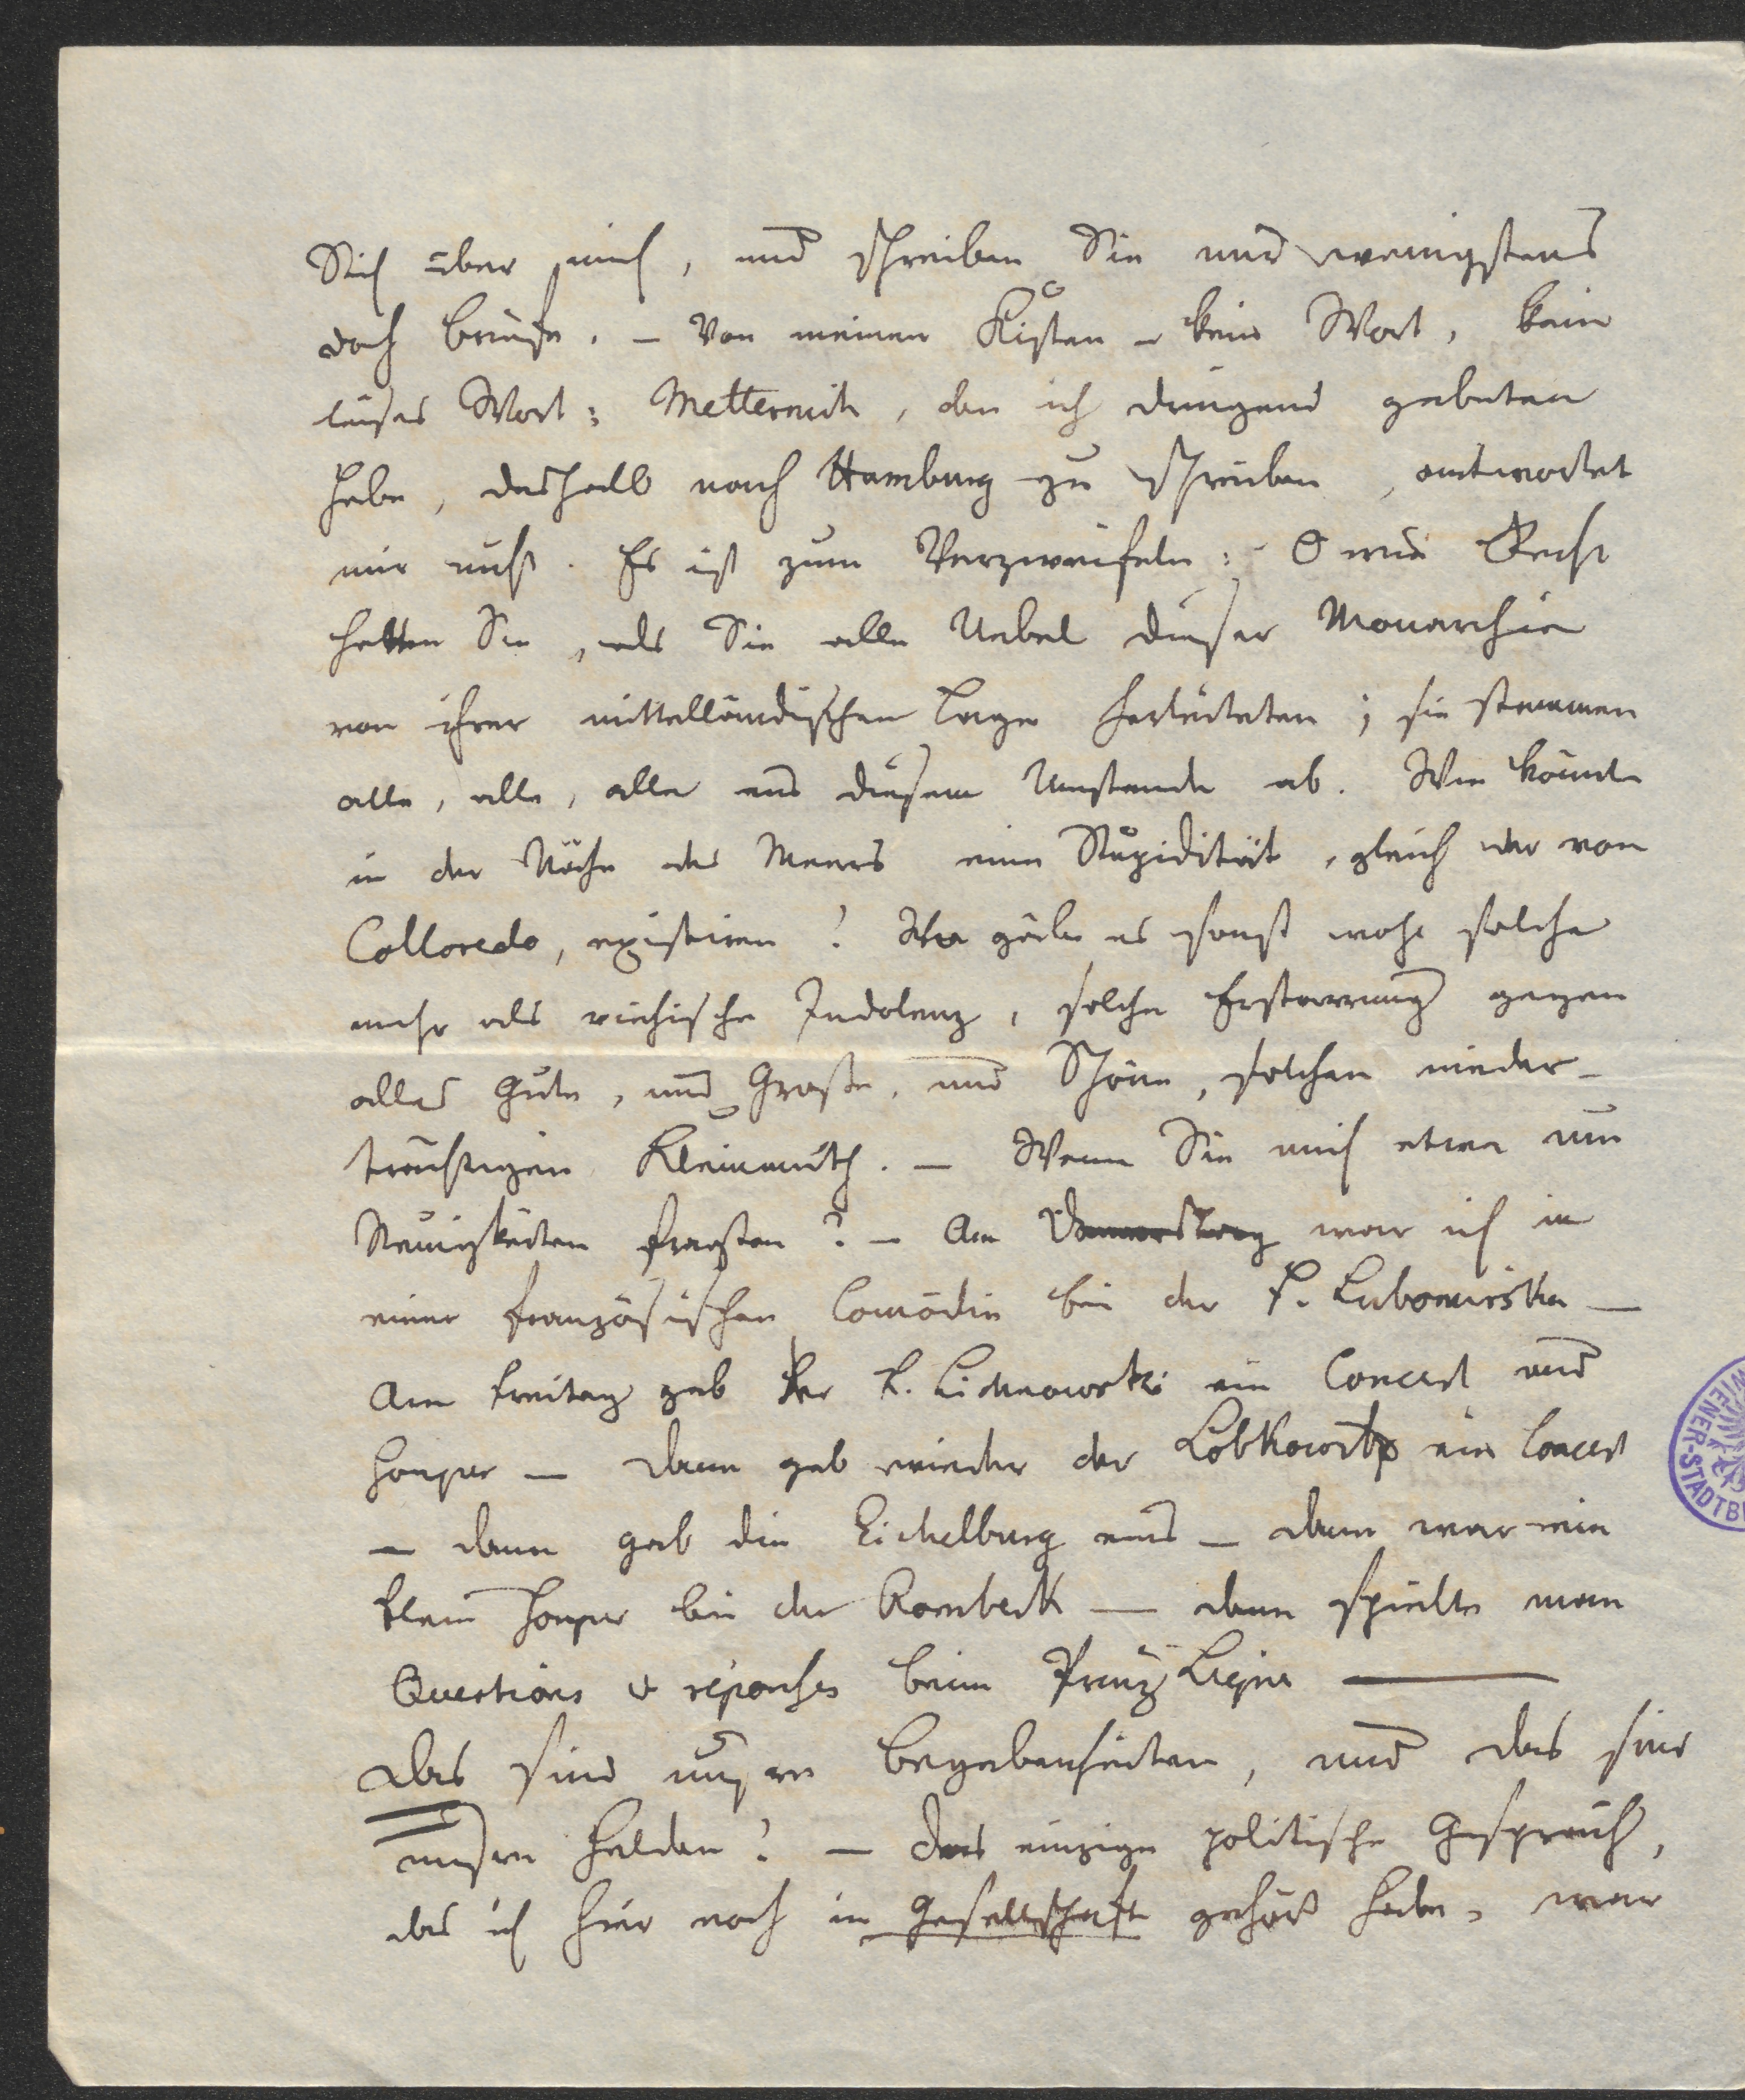 Sich über mich, und schreiben Sie mir wenigstens
doch Briefe. – Von meinen Kisten – kein Wort, kein
leises Wort: Metternich, den ich dringend gebeten
habe, deshalb nach Hamburg zu schreiben, antwortet
mir nicht. Es ist zum Verzweifeln: O wie Recht
hatten Sie, als Sie alle Uebel dieser Monarchie
von ihrer mittelländischen Lage herleiteten; sie stammen
alle, alle, alle aus diesem Umstande ab. Wie könnte
in der Nähe des Meers eine Stupidität, gleich der von
Colloredo, existiren? Wo gäbe es sonst wohl solche
mehr als viehische Indolenz, solche Erstarrung gegen
alles Gute, und Große, und Schöne, solchen nieder-
trächtigen Kleinmuth. – Wenn Sie mich etwa um
Neuigkeiten fragten? – Am Donnerstag war ich in
einer französischen Comödie bei der F. Lubomirska –
Am Freitag gab der F. Lichnowski ein Concert und
Souper – dann gab wieder der Lobkowitz ein Concert
– dann gab die Eichelburg eins – dann war ein
klein Souper bei der Rombeck – dann spielte man
Questions & réponses beim Prinz Ligne –
Das sind unsre Begebenheiten, und das sind
unsre Helden! – Das einzige politische Gespräch,
das ich hier noch in Gesellschaft gehört habe, war
WIENER-STADTB